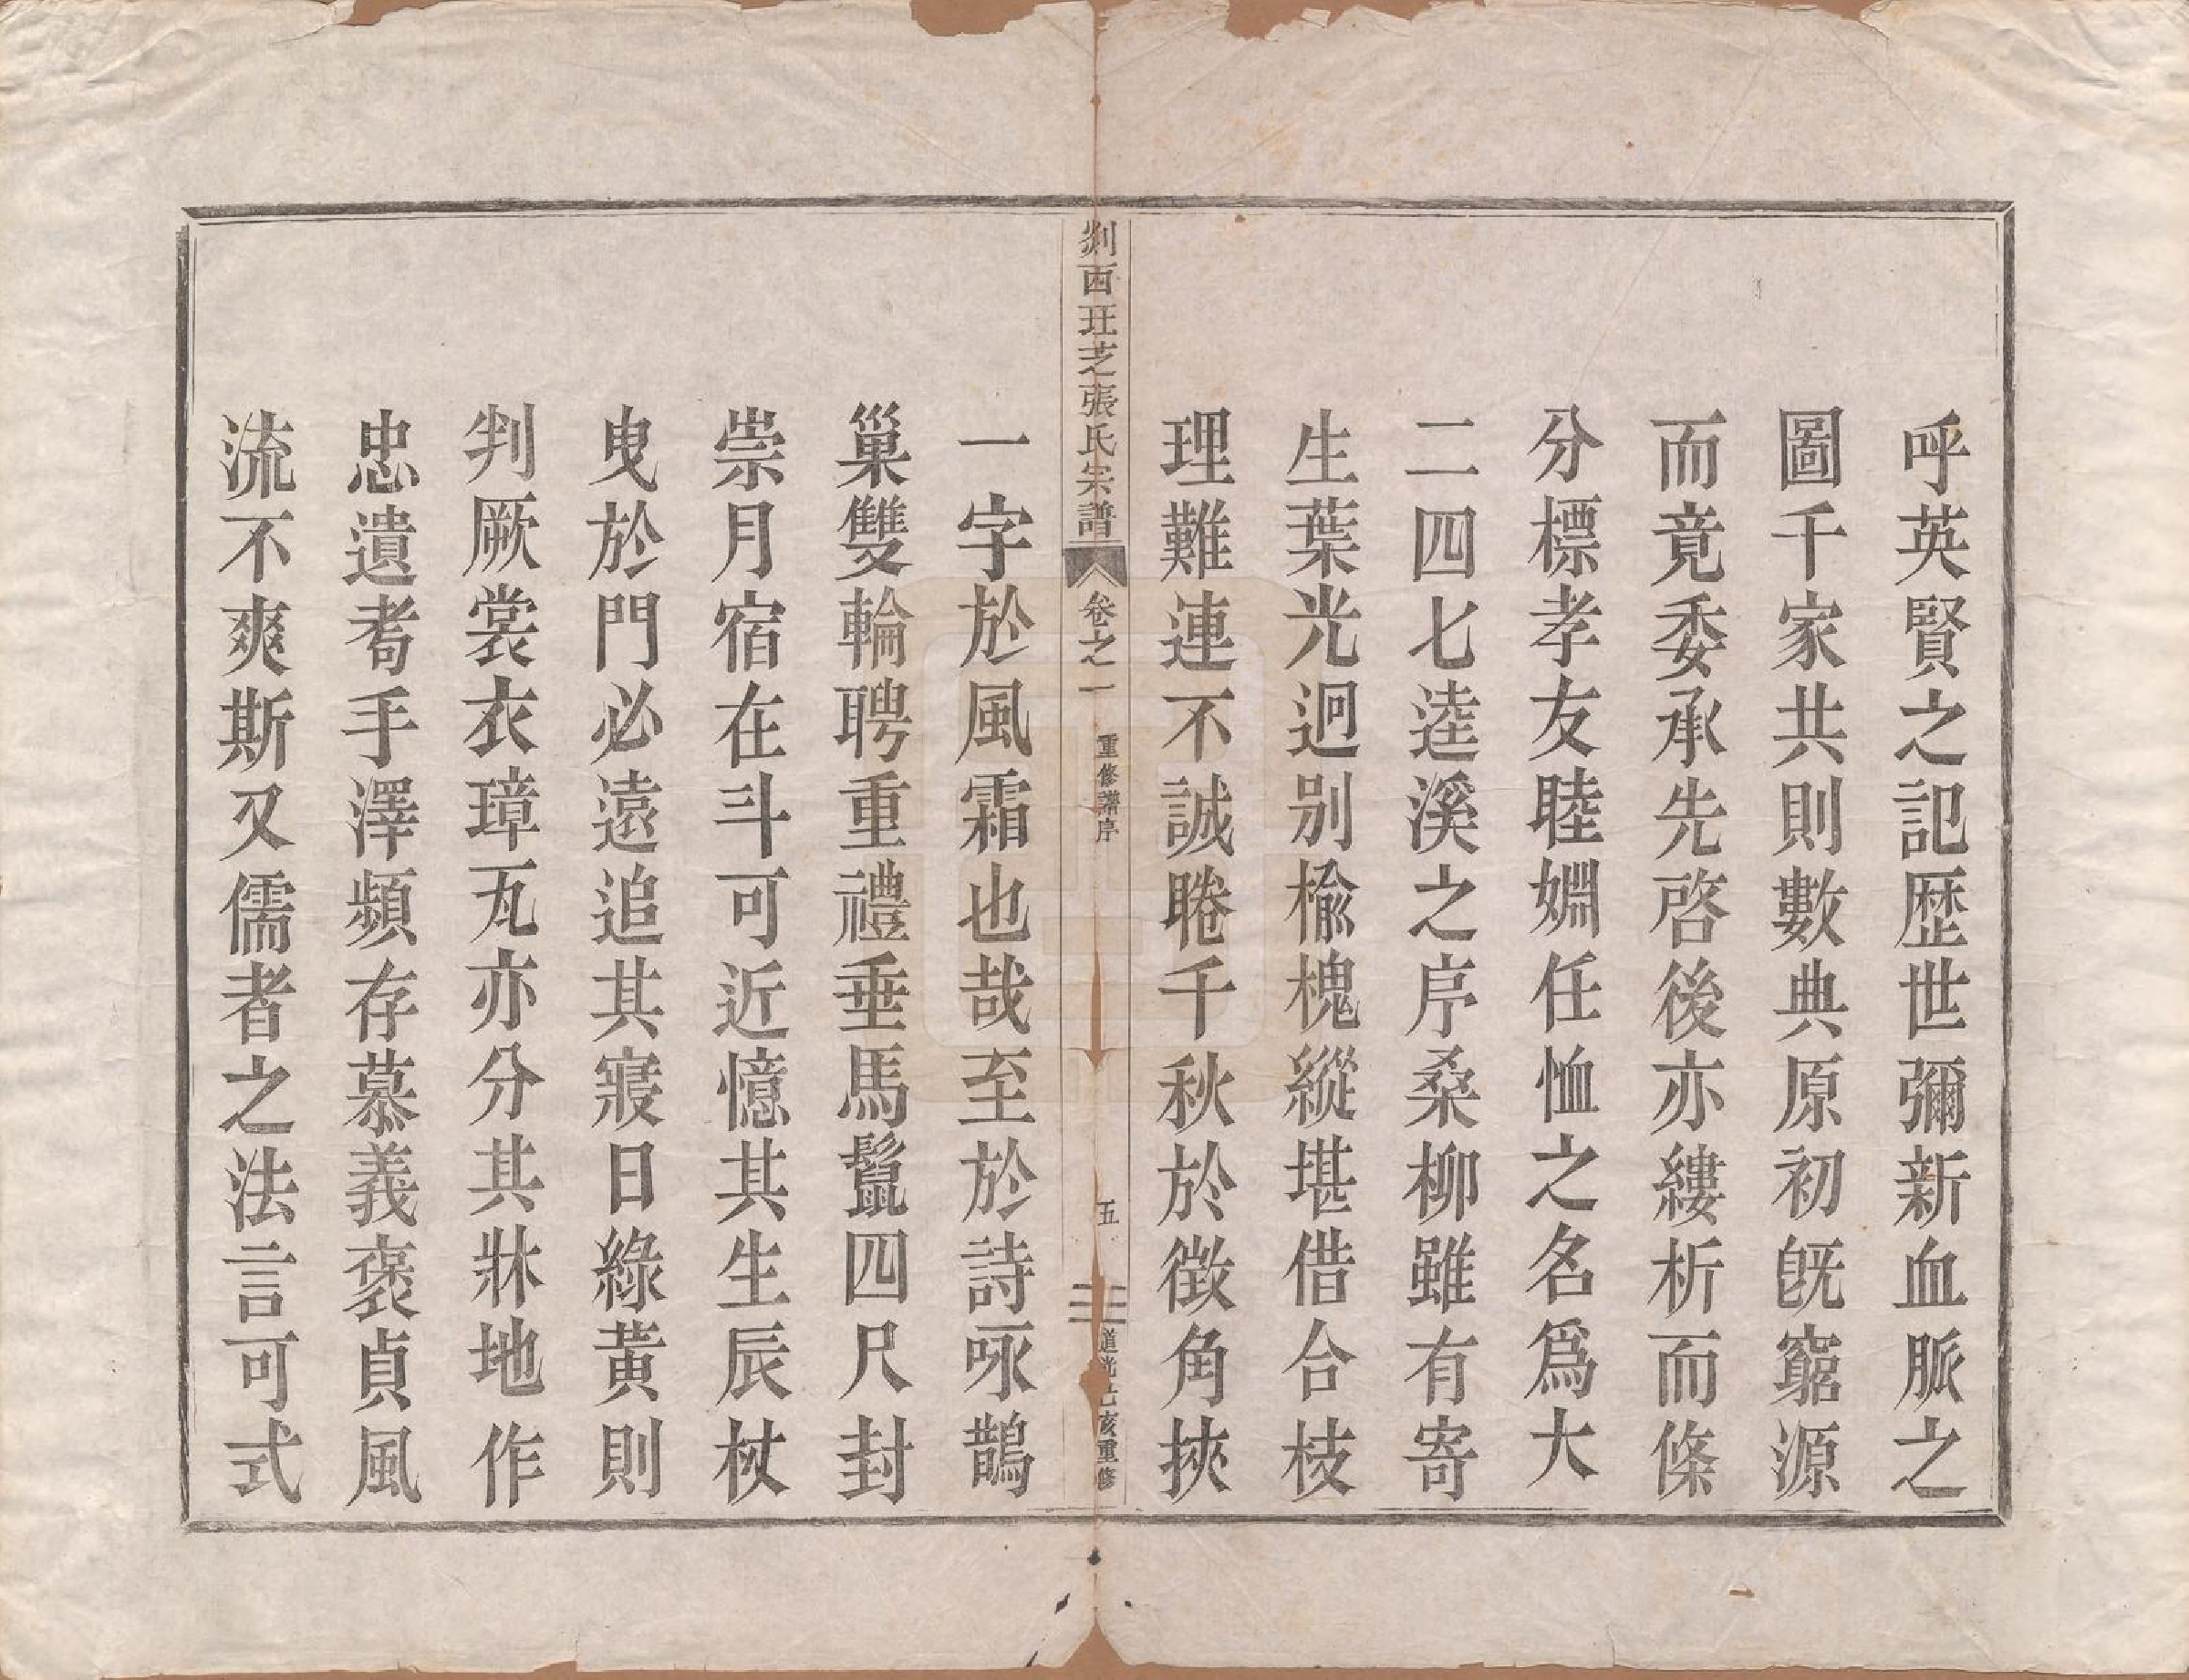 呼英賢之記歷世彌新血脈之
圖千家共則數典原初旣窮源
而竟委承先啓後亦縷析而條
分標孝友睦婣任恤之名爲大
二四七逵溪之序桑柳雖有寄
生葉光迥別榆槐縱堪借合枝
理難連不誠睠千秋於徵角挾
一字於風霜也哉至於詩咏鵲
巢雙輪聘重禮垂馬鬣四尺封
崇月宿在斗可近憶其生辰杖
曳於門必遠追其寢日綠黃則
判厥裳衣璋瓦亦分其牀地作
忠遺耇手澤頻存慕義褒貞風
流不爽斯又儒者之法言可式
剡西珏芝張氏宗譜
卷之一
重修譜序
五
道光己亥重修